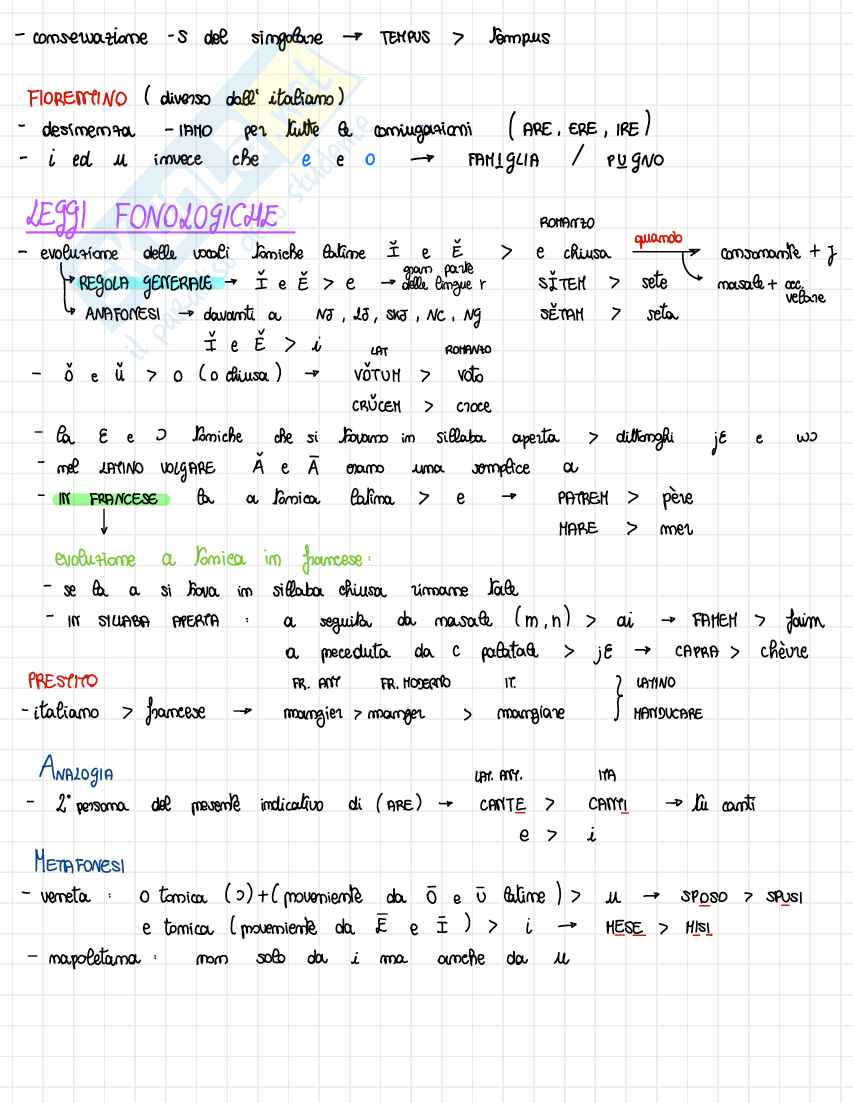 - conservazione -s del singolare → TEMPUS > tempus
FIORENTINO (diverso dall'italiano)
- desinenza -IAMO per tutte le coniugazioni (ARE, ERE, IRE)
- i ed u invece che e e o → FAMIGLIA / PUGNO
LEGGI FONOLOGICHE
ROMANZO
- evoluzione delle vocali toniche latine Ĭ e Ĕ > e chiusa quando → consonante + J
→ REGOLA GENERALE → Ĭ e Ĕ > e → gran parte delle lingue r SĬTEM > sete nasale + occ. velare
→ ANAFONESI → davanti a NJ, LJ, SKJ, NC, NG SĔTAM > seta
Ĭ e Ĕ > i LAT ROMANZO
- ŏ e ŭ > o (o chiusa) → VŎTUM > voto
CRŬCEM > croce
- la ɛ e ɔ toniche che si trovano in sillaba aperta > dittonghi jɛ e wɔ
- nel LATINO VOLGARE Ă e Ā erano una semplice a
- IN FRANCESE la a tonica latina > e → PATREM > père
MARE > mer
evoluzione a tonica in francese:
- se la a si trova in sillaba chiusa rimane tale
- IN SILLABA APERTA : a seguita da nasale (m,n) > ai → FAMEM > faim
a preceduta da c palatale > jɛ → CAPRA > chèvre
PRESTITO FR. ANT FR. MODERNO IT. } LATINO
- italiano > francese → mangier > manger > mangiare } MANDUCARE
ANALOGIA LAT. ANT. ITA
- 2° persona del presente indicativo di (ARE) → CANTE > CANTI → tu canti
e > i
METAFONESI
- veneta : o tonica (ɔ)+(proveniente da Ō e Ū latine) > u → SPOSO > SPUSI
e tonica (proveniente da Ē e Ī) > i → MESE > MISI
- napoletana : non solo da i ma anche da u
SKUOLA.net
il paradiso dello studente